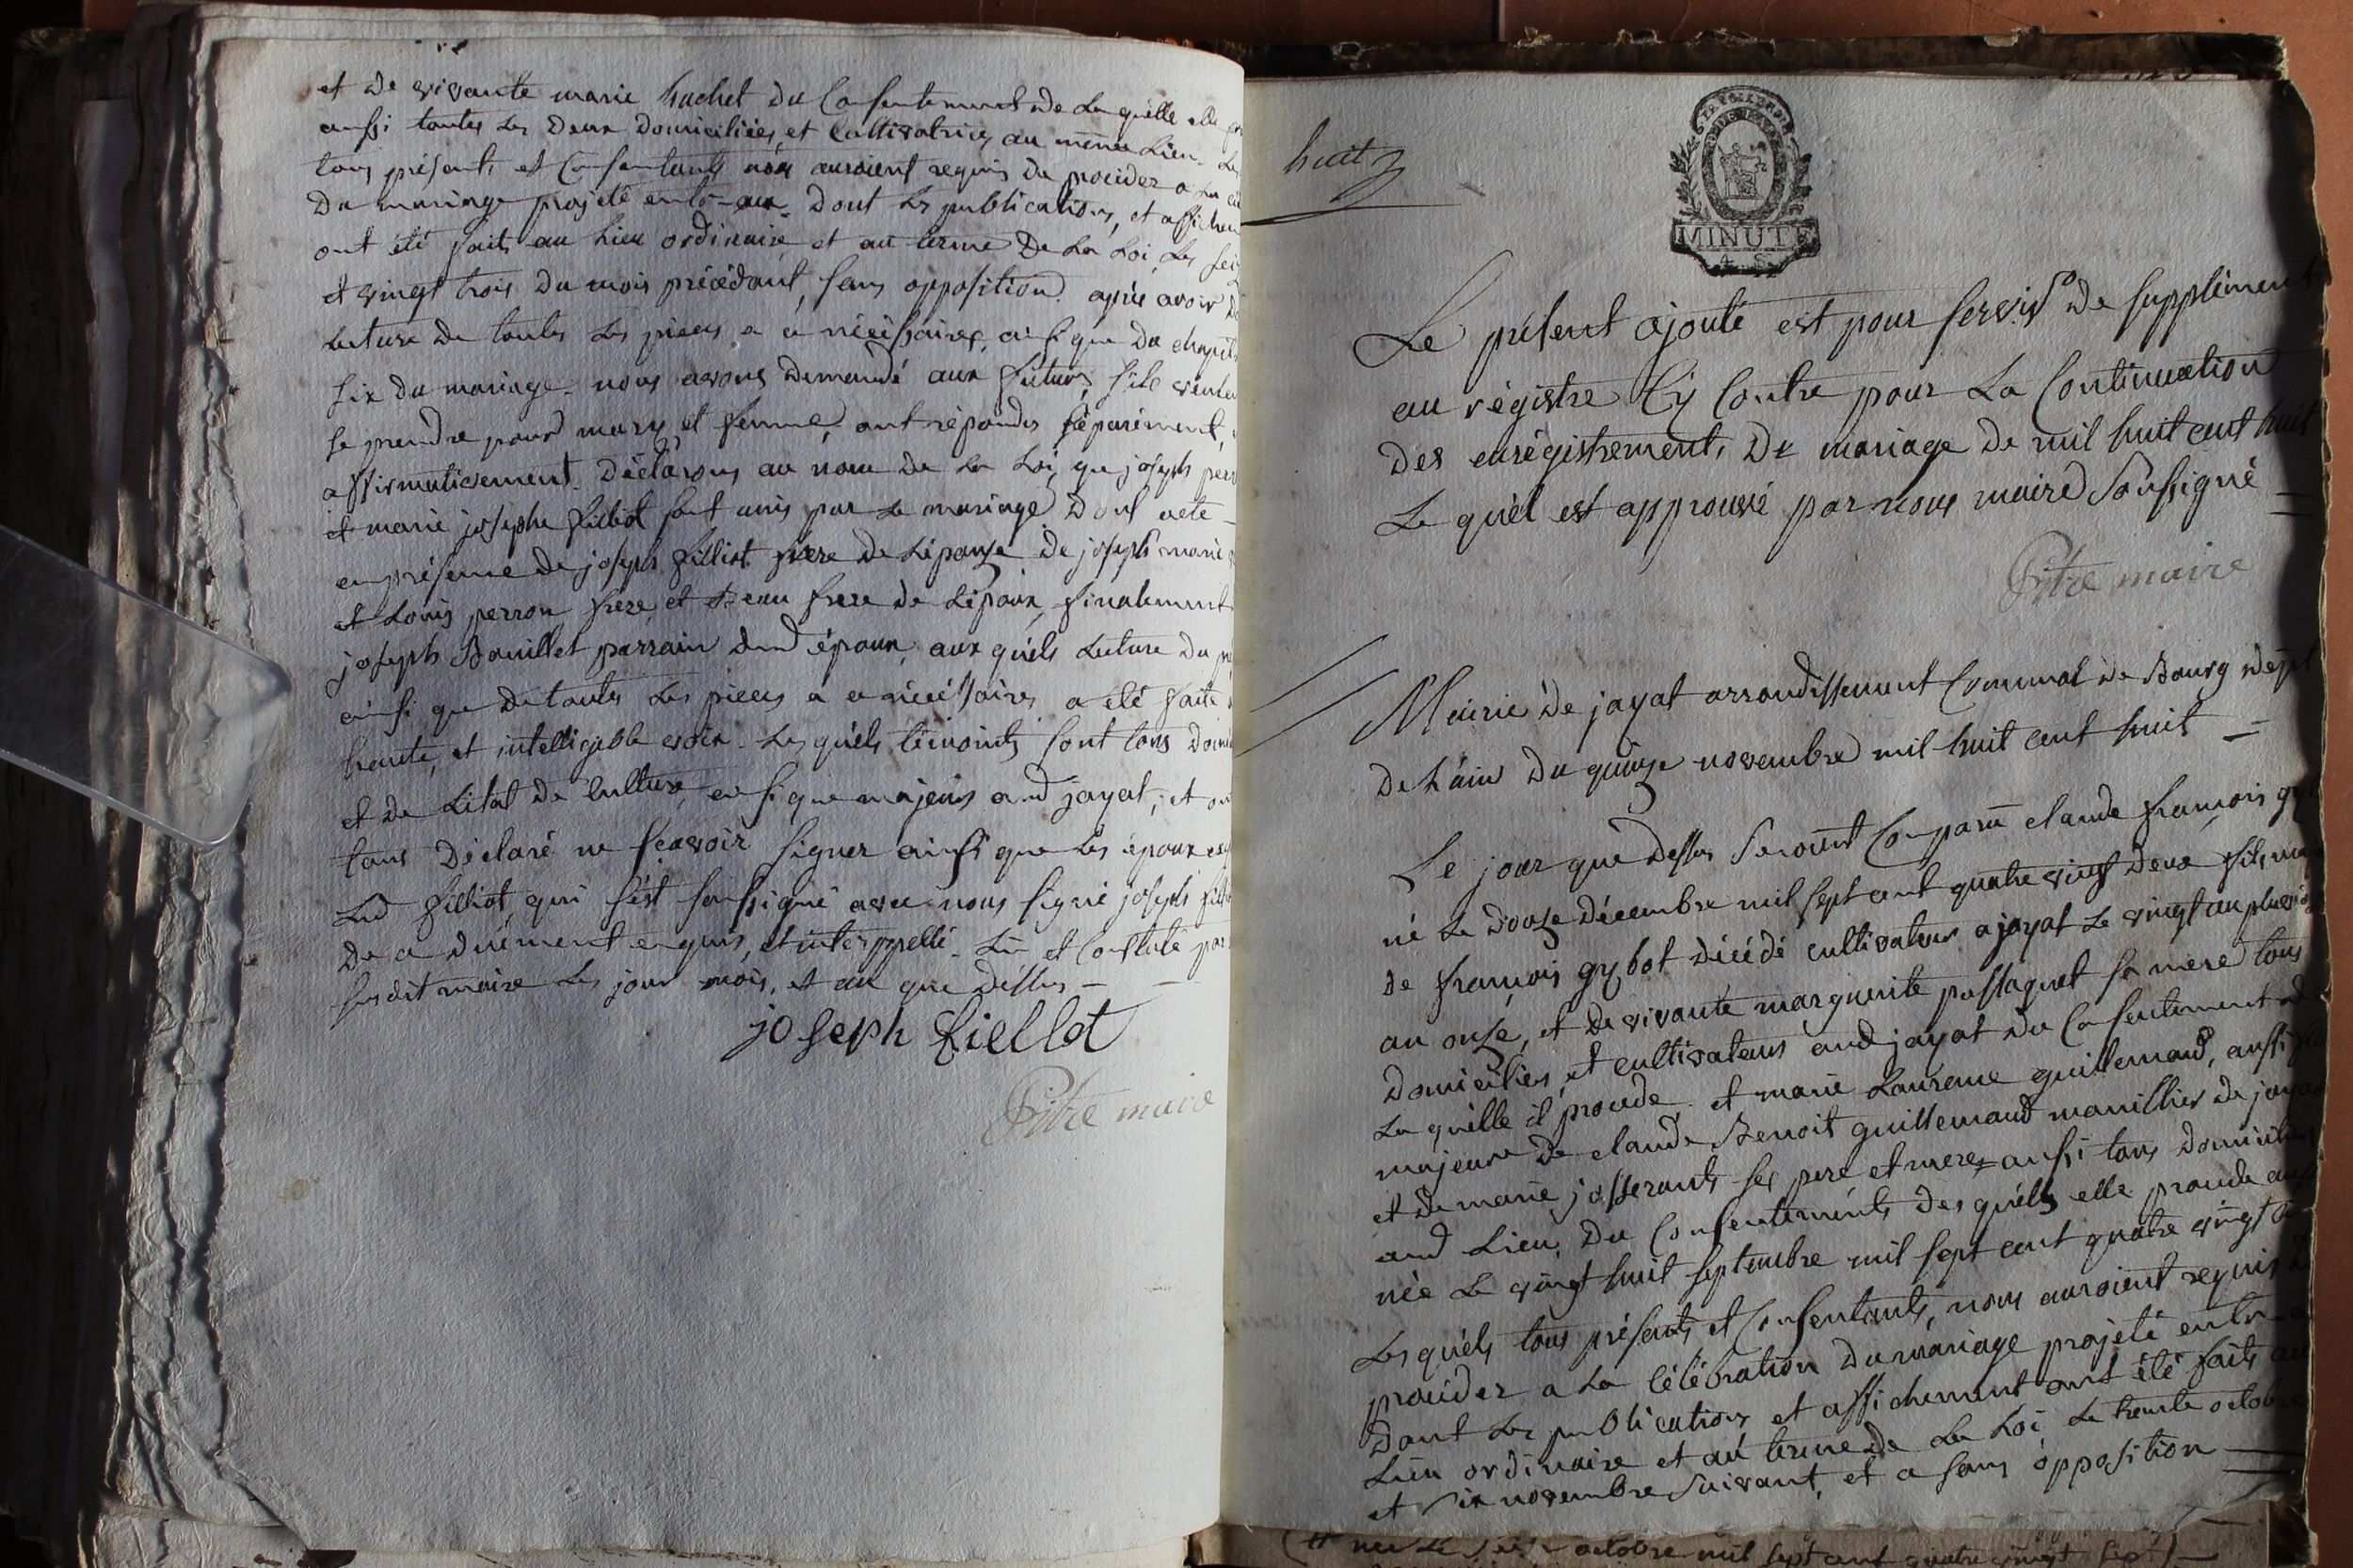 et de vivante marie huchet du Consentement de La quélle elle
aussi toutes Les Deux domiciliées, et Cultivatrices au même Lieu. Les
tous présents et Consentants nous auroient requis de procéder a La
Du mariage projeté entr-eux. Dont Les publications, et affichem
ont été faits au Lieu ordinaire et au terme De La Loi, Les sei
et vingt trois du mois précédant, sans opposition. après avoir
Lecture de toutes Les pieces a ce nécéssaires, ainsi que du chapit
six du mariage. nous avons demandé aux futurs s'ils veulen
se prendre pour mary, et femme, ont répondus séparément,
affirmativement. Déclarons au nom de La Loi, que joseph perr
et marie josephe filliot sont unis par Le mariage. Dont acte
en présence de joseph filliot frere de L'épouse de joseph marie
et Louis perron frere et beau frere de L'époux, finalement
joseph Bouillet parrain dud époux, aux quéls Lecture du pr
ainsi que de toutes Les pieces a ce nécéssaires a été faite
haute, et intelligeble voix. Les quéls témoints sont tous domi
et de L'état de Culture, ainsi que majeurs aud jayat, et on
tous Déclaré ne sçavoir signer ainsi que Les époux
Lud filliot, qui s'est soussigné avec nous signé joseph filli
De ce duément enquis, et interppellé. Lu et Constaté par
susdit maire Les jour mois, et an que Déssus
joseph fiellot
Pitre maire
huit
MINUTE
Le présent ajouté est pour servir De supplément
au régistre Cy Contre pour La Continuation
Des enrégistrements De mariage De mil huit cent huit
Le quél est approuvé par nous maire Soussigné
Pitre maire
Mairie De jayat arrondissement Communal de Bourg dépt
De L'ain du quinze novembre mil huit cent huit
Le jour que Dessus Seroint Comparu claude françois
né Le douze décembre mil sept cent quatre vingt deux fils
de françois gybot décédé cultivateur a jayat Le vingt un pluviose
an onze, et de vivante marguerite pastaquet sa mere tous
Domiciliés, et cultivateurs aud jayat du Consentement de
La quélle il procede. et marie Laurence guillemaud, aussi
majeure de claude Benoit guillemaud manillier de jayat
et de marie josserants ses pere et mere aussi tous domiciliés
aud Lieu, du Consentements des quéls elle procede
née Le vingt huit septembre mil sept cent quatre vingt
Les quéls tous présents et Consentants, nous auroient requis
procéder a La Célébration Du mariage projeté entr
Dont Les publications et affichement ont été faits au
Lieu ordinaire et au terme de La Loi, Le trente octobre
et six novembre suivant, et a sans opposition
octobre mil sept cent quatre vingt